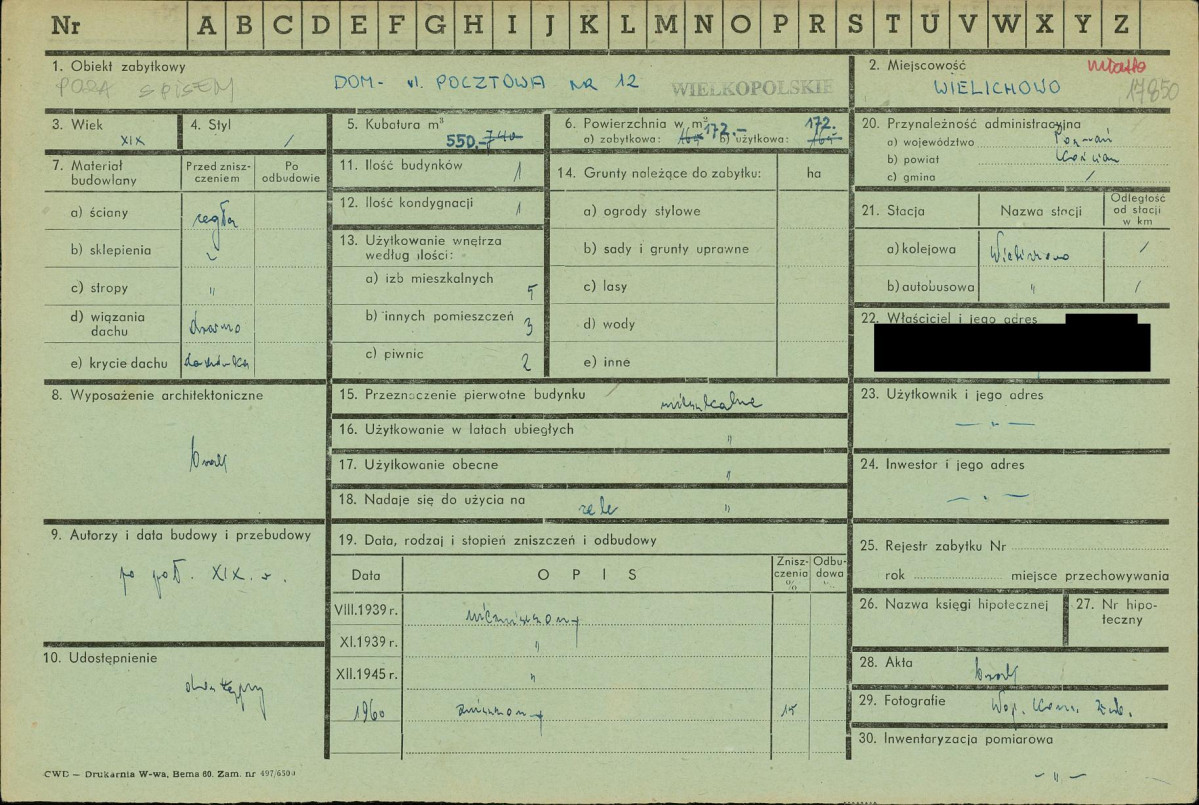 Nr A B C D E F G H I J K L M N O P R S T U V W X Y Z
1. Obiekt zabytkowy
POZA SPISEM
DOM - ul. POCZTOWA NR 12
WIELKOPOLSKIE
2. Miejscowość
miasto
WIELICHOWO
17850
3. Wiek
XIX
4. Styl
/
5. Kubatura m³
550.- 740
6. Powierzchnia w m²
a) zabytkowa: 172.- b) użytkowa: 172.-
7. Materiał budowlany
Przed zniszczeniem
Po odbudowie
a) ściany cegła
b) sklepienia "
c) stropy "
d) wiązania dachu drewno
e) krycie dachu dachówka
8. Wyposażenie architektoniczne
brak
9. Autorzy i data budowy i przebudowy
po poł. XIX w.
10. Udostępnienie
dostępny
11. Ilość budynków 1
12. Ilość kondygnacji 1
13. Użytkowanie wnętrza
według ilości:
a) izb mieszkalnych 5
b) innych pomieszczeń 3
c) piwnic 2
14. Grunty należące do zabytku: ha
a) ogrody stylowe
b) sady i grunty uprawne
c) lasy
d) wody
e) inne
15. Przeznaczenie pierwotne budynku mieszkalne
16. Użytkowanie w latach ubiegłych "
17. Użytkowanie obecne "
18. Nadaje się do użycia na cele "
19. Data, rodzaj i stopień zniszczeń i odbudowy
Data OPIS Zniszczenia % Odbudowa %
VIII.1939 r. niezniszczony
XI.1939 r. "
XII.1945 r. "
1960 zniszczony 15
20. Przynależność administracyjna
a) województwo Poznań
b) powiat Kościan
c) gmina /
21. Stacja Nazwa stacji Odległość od stacji w km
a) kolejowa Wielichowo /
b) autobusowa " /
22. Właściciel i jego adres
23. Użytkownik i jego adres
— " —
24. Inwestor i jego adres
— " —
25. Rejestr zabytku Nr
rok miejsce przechowywania
26. Nazwa księgi hipotecznej
27. Nr hipoteczny
28. Akta brak
29. Fotografie Woj. Kons. Zab.
30. Inwentaryzacja pomiarowa
— " —
CWD — Drukarnia W-wa, Bema 60. Zam. nr 497/6500